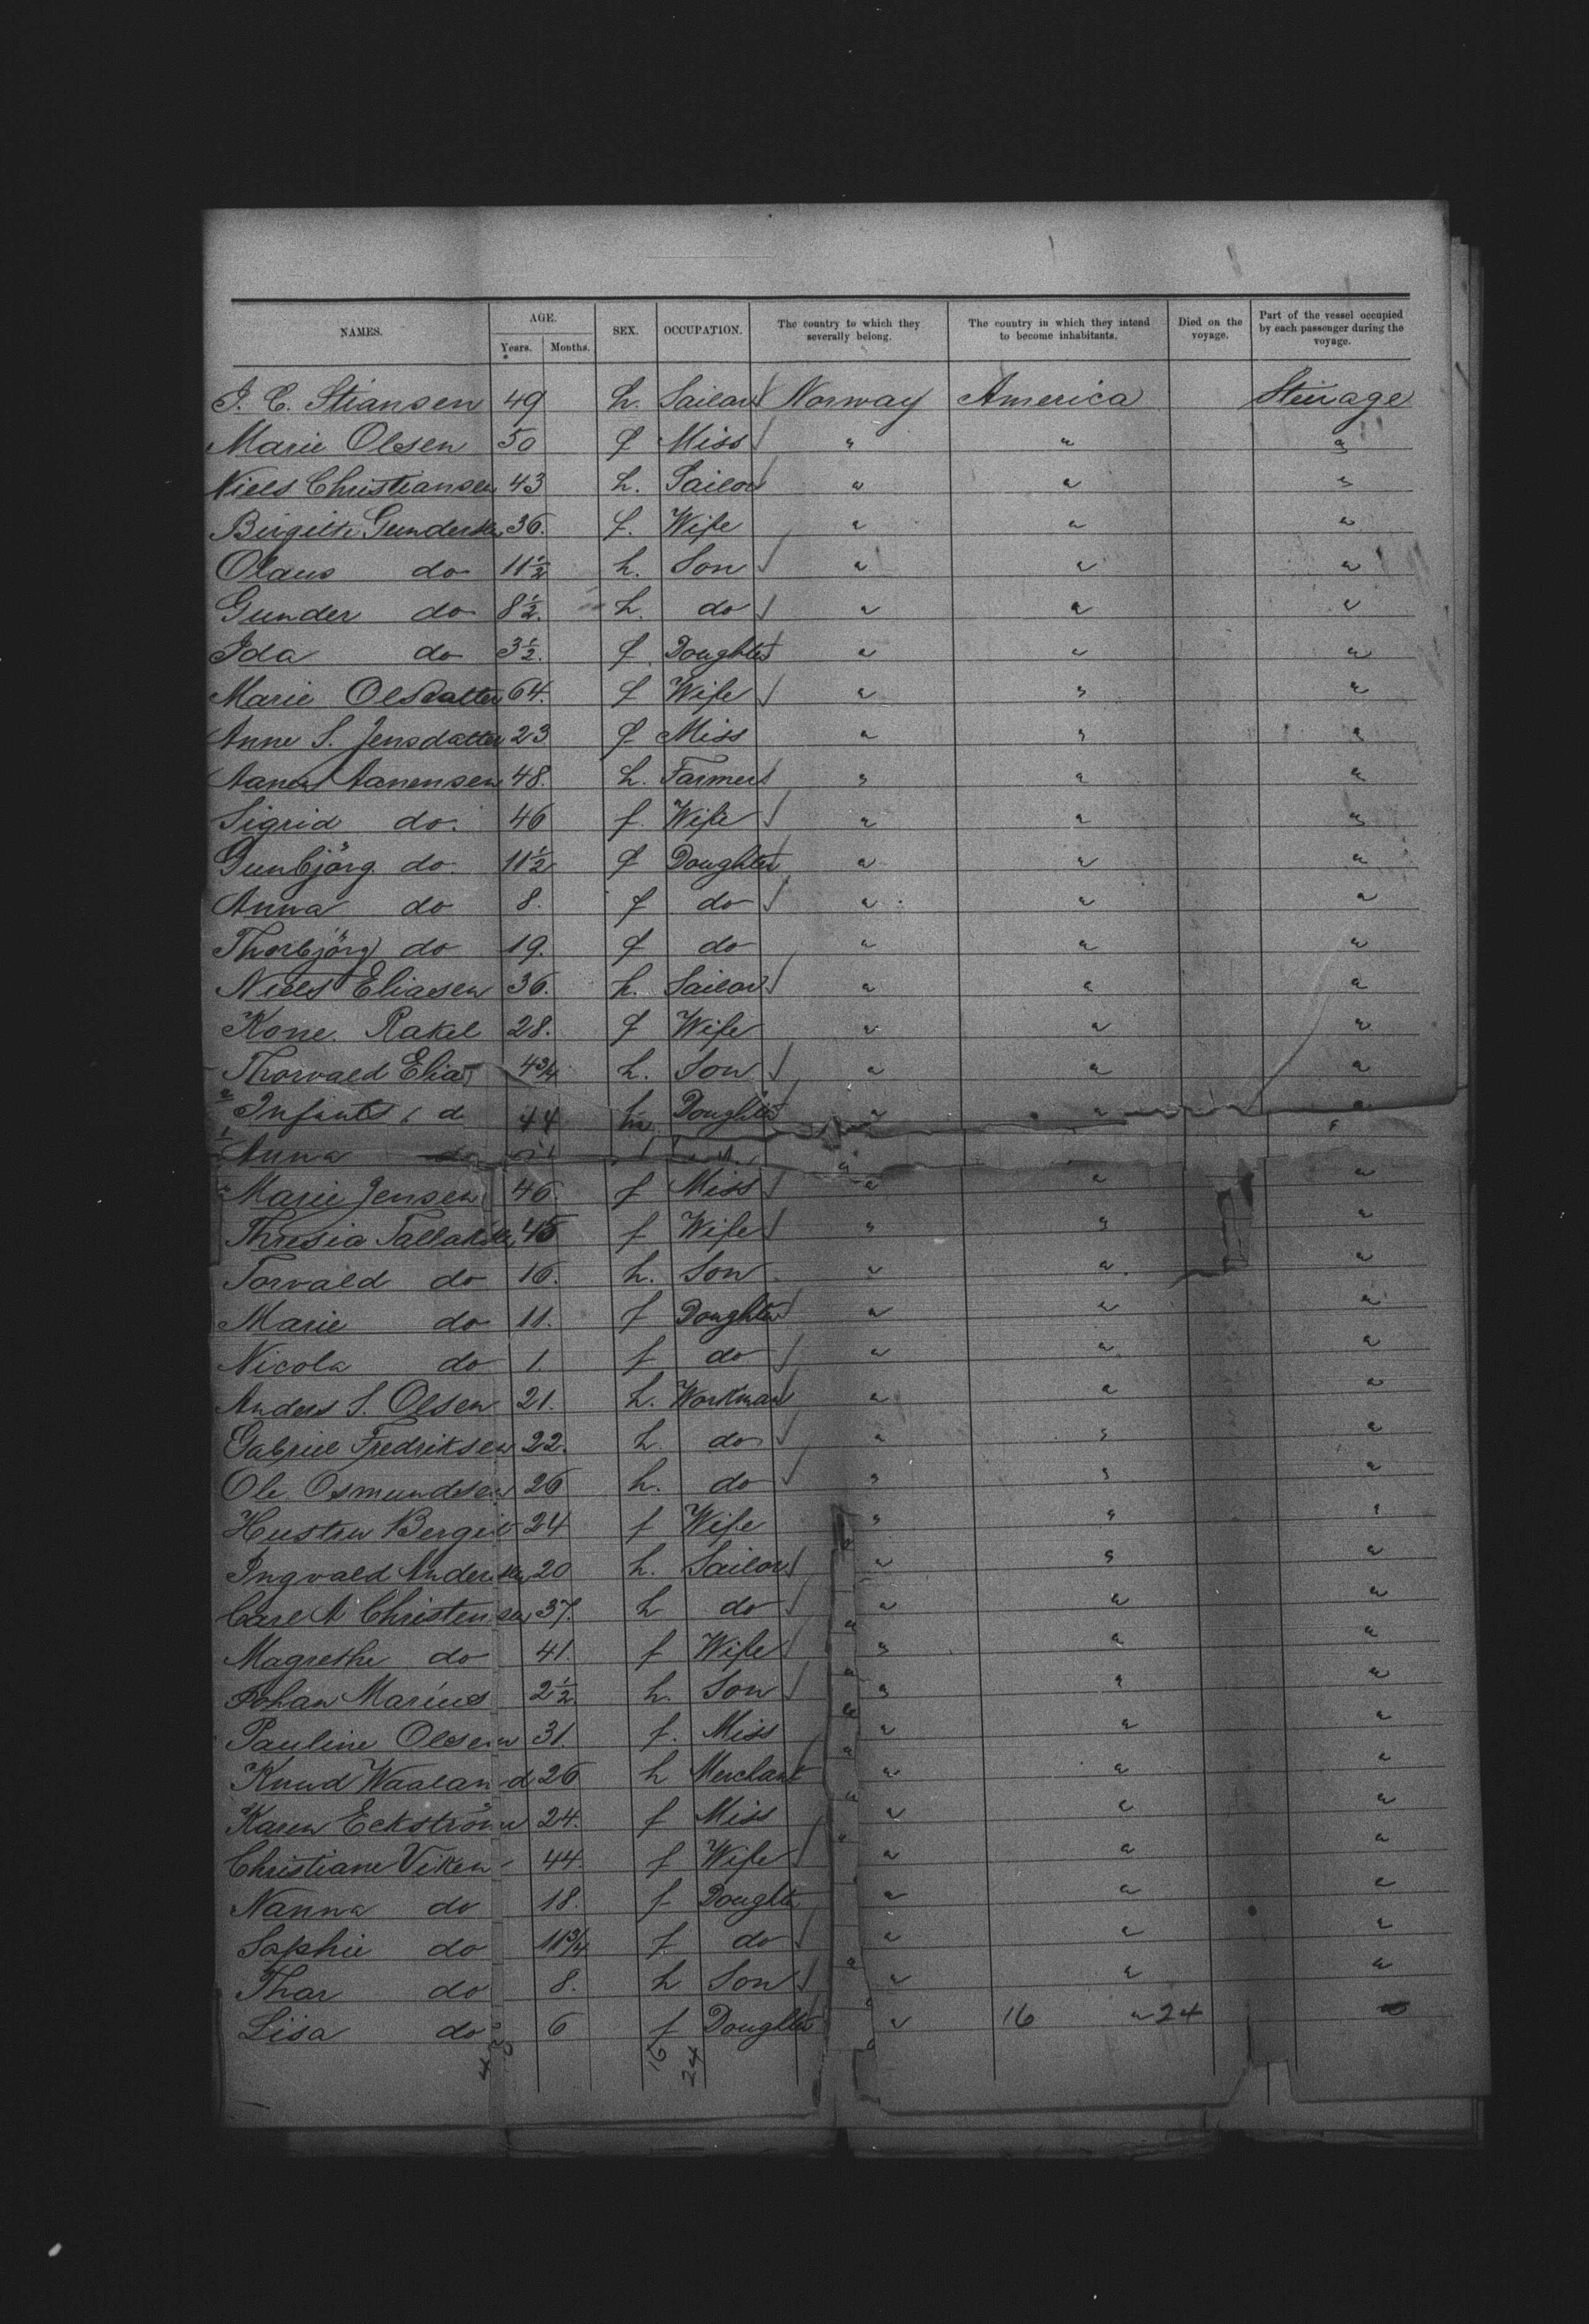 NAMES. AGE. Years. Months. SEX. OCCUPATION. The country to which they severally belong. The country in which they intend to become inhabitants. Died on the voyage. Part of the vessel occupied by each passenger during the voyage.
J. C. Stiansen 49 h. Sailor Norway America Steerage
Marie Olsen 50 f Miss " " "
Niels Christiansen 43 h. Sailor " " "
Birgitte Gundersen 36. f. Wife " " "
Olaus do 11½ h. Son " " "
Gunder do 8½. h. do " " "
Ida do 3½. f. Doughter " " "
Marie Olsdatter 64. f Wife " " "
Anne S. Jensdatter 23 f Miss " " "
Aanen Aanensen 48. h. Farmer " " "
Sigrid do. 46 f. Wife " " "
Gunbjörg do. 11½ f Doughter " " "
Anna do 8. f do " " "
Thorbjörg do 19. f do " " "
Niels Eliasen 36. h. Sailor " " "
Kone. Rakel 28. f Wife " " "
Thorvald Elias 4¾ h. Son " " "
Infants Doughter " " "
Anna do
Marie Jensen 46. f Miss " " "
Thresia 45 f Wife " " "
Torvald do 16. h. Son " " "
Marie do 11. f Doughter " " "
Nicola do 1. f do " " "
Anders S. Olsen 21. h. Workman " " "
Gabriel Fredriksen 22. h. do " " "
Ole Osmundsen 26 h. do " " "
Hustru Bergit 24 f Wife " " "
Ingvald Andersen 20 h. Sailor " " "
Carl A Christensen 37. h do " " "
Magrethe do 41. f Wife " " "
Johan Marius 2½. h. Son " " "
Pauline Olsen 31. f. Miss " " "
Knud Waaland 26 h Merchant " " "
Karen Eckström 24. f Miss " " "
Christiane Viken 44. f Wife " " "
Nanna do 18. f Doughter " " "
Sophie do 11¾ f do " " "
Thor do 8. h Son " " "
Lisa do 6 f Doughter " 16 " 24
16 24